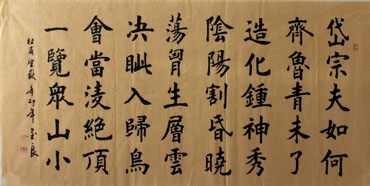 岱宗夫如何
齊魯青未了
造化鍾神秀
陰陽割昏曉
蕩胷生層雲
决眦入歸鳥
會當凌絕頂
一覽眾山小
杜甫望嶽 辛卯年